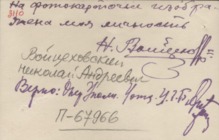 на фотокарточке изобра-
жена моя личность
Н. Войцех
Войцеховский
Николай Андреевич
Верно:
П-67966